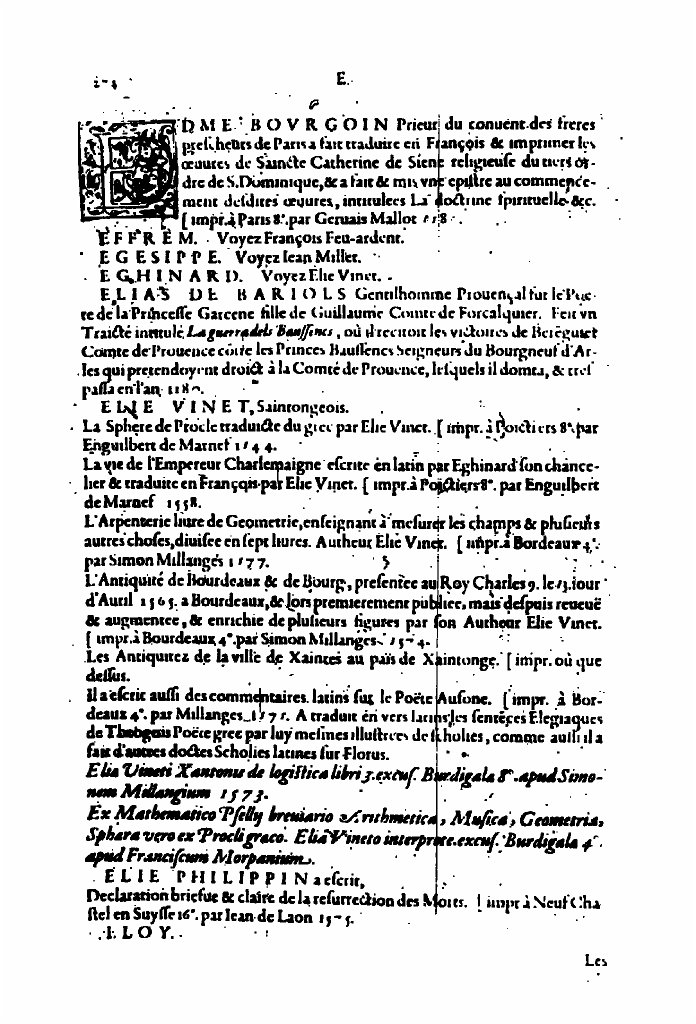 E.
EDME BOVRGOIN Prieur du conuent des freres
prescheurs de Paris a fait traduire en François & imprimer les
œuures de Saincte Catherine de Siene religieuse du tiers or-
dre de S. Dominique, & a fait & mis vne epistre au commence-
ment desdites œuures, intitulees La doctrine spirituelle &c.
[ impr. à Paris 8°. par Geruais Mallot
EFFREM. Voyez François Feu-ardent.
EGESIPPE. Voyez Iean Millet.
EGHINARD. Voyez Elie Vinet.
ELIAS DE BARIOLS Gentilhomme Prouençal fut le Poe-
te de la Princesse Garcene fille de Guillaume Comte de Forcalquier. Feit vn
Traicté intitulé La guerra dels Baussencs, où il recitoit les victoires de Berēguier
Comte de Prouence cōtre les Princes Baussencs Seigneurs du Bourgneuf d'Ar-
les qui pretendoyent droict à la Comté de Prouence, lesquels il domta, & tres-
passa en l'an
ELIE VINET, Saintongeois.
La Sphere de Procle traduicte du grec par Elie Vinet. [ impr. à Poictiers 8°. par
Enguilbert de Marnef 1544.
La vie de l'Empereur Charlemaigne escrite en latin par Eghinard son chance-
lier & traduite en François par Elie Vinet. [ impr. à Poictiers 8°. par Enguilbert
de Marnef 1558.
L'Arpenterie liure de Geometrie, enseignant à mesurer les champs & plusieurs
autres choses, diuisee en sept liures. Autheur Elie Vinet. [ impr. à Bordeaux 4°.
par Simon Millanges 1577.
L'Antiquité de Bourdeaux & de Bourg, presentee au Roy Charles 9. le 13. iour
d'Auril 1565. a Bourdeaux, & lors premierement publiee, mais despuis reueuë
& augmentee, & enrichie de plusieurs figures par son Autheur Elie Vinet.
[ impr. à Bourdeaux 4°. par Simon Millanges. 1574.
Les Antiquitez de la ville de Xaintes au païs de Xaintonge. [ impr. où que
dessus.
Il a escrit aussi des commentaires latins sur le Poëte Ausone. [ impr. à Bor-
deaux 4°. par Millanges 1575. A traduit en vers latins les sentēces Elegiaques
de Theognis Poëte grec par luy mesmes illustrees de scholies, comme aussi il a
fait d'autres doctes Scholies latines sur Florus.
Elia Vineti Xantonis de logistica libri 3. excus. Burdigala 8°. apud Simo-
nem Millangium 1573.
Ex Mathematico Pselly breuiario Arithmetica, Musica, Geometria,
Sphara vero ex Procli graco. Elia Vineto interprete. excus. Burdigala 4°.
apud Franciscum Morpanium.
ELIE PHILIPPIN a escrit,
Declaration briefue & claire de la resurrection des Morts. [ impr à Neuf Cha
stel en Suysse 16°. par Iean de Laon 1575.
ELOY.
Les